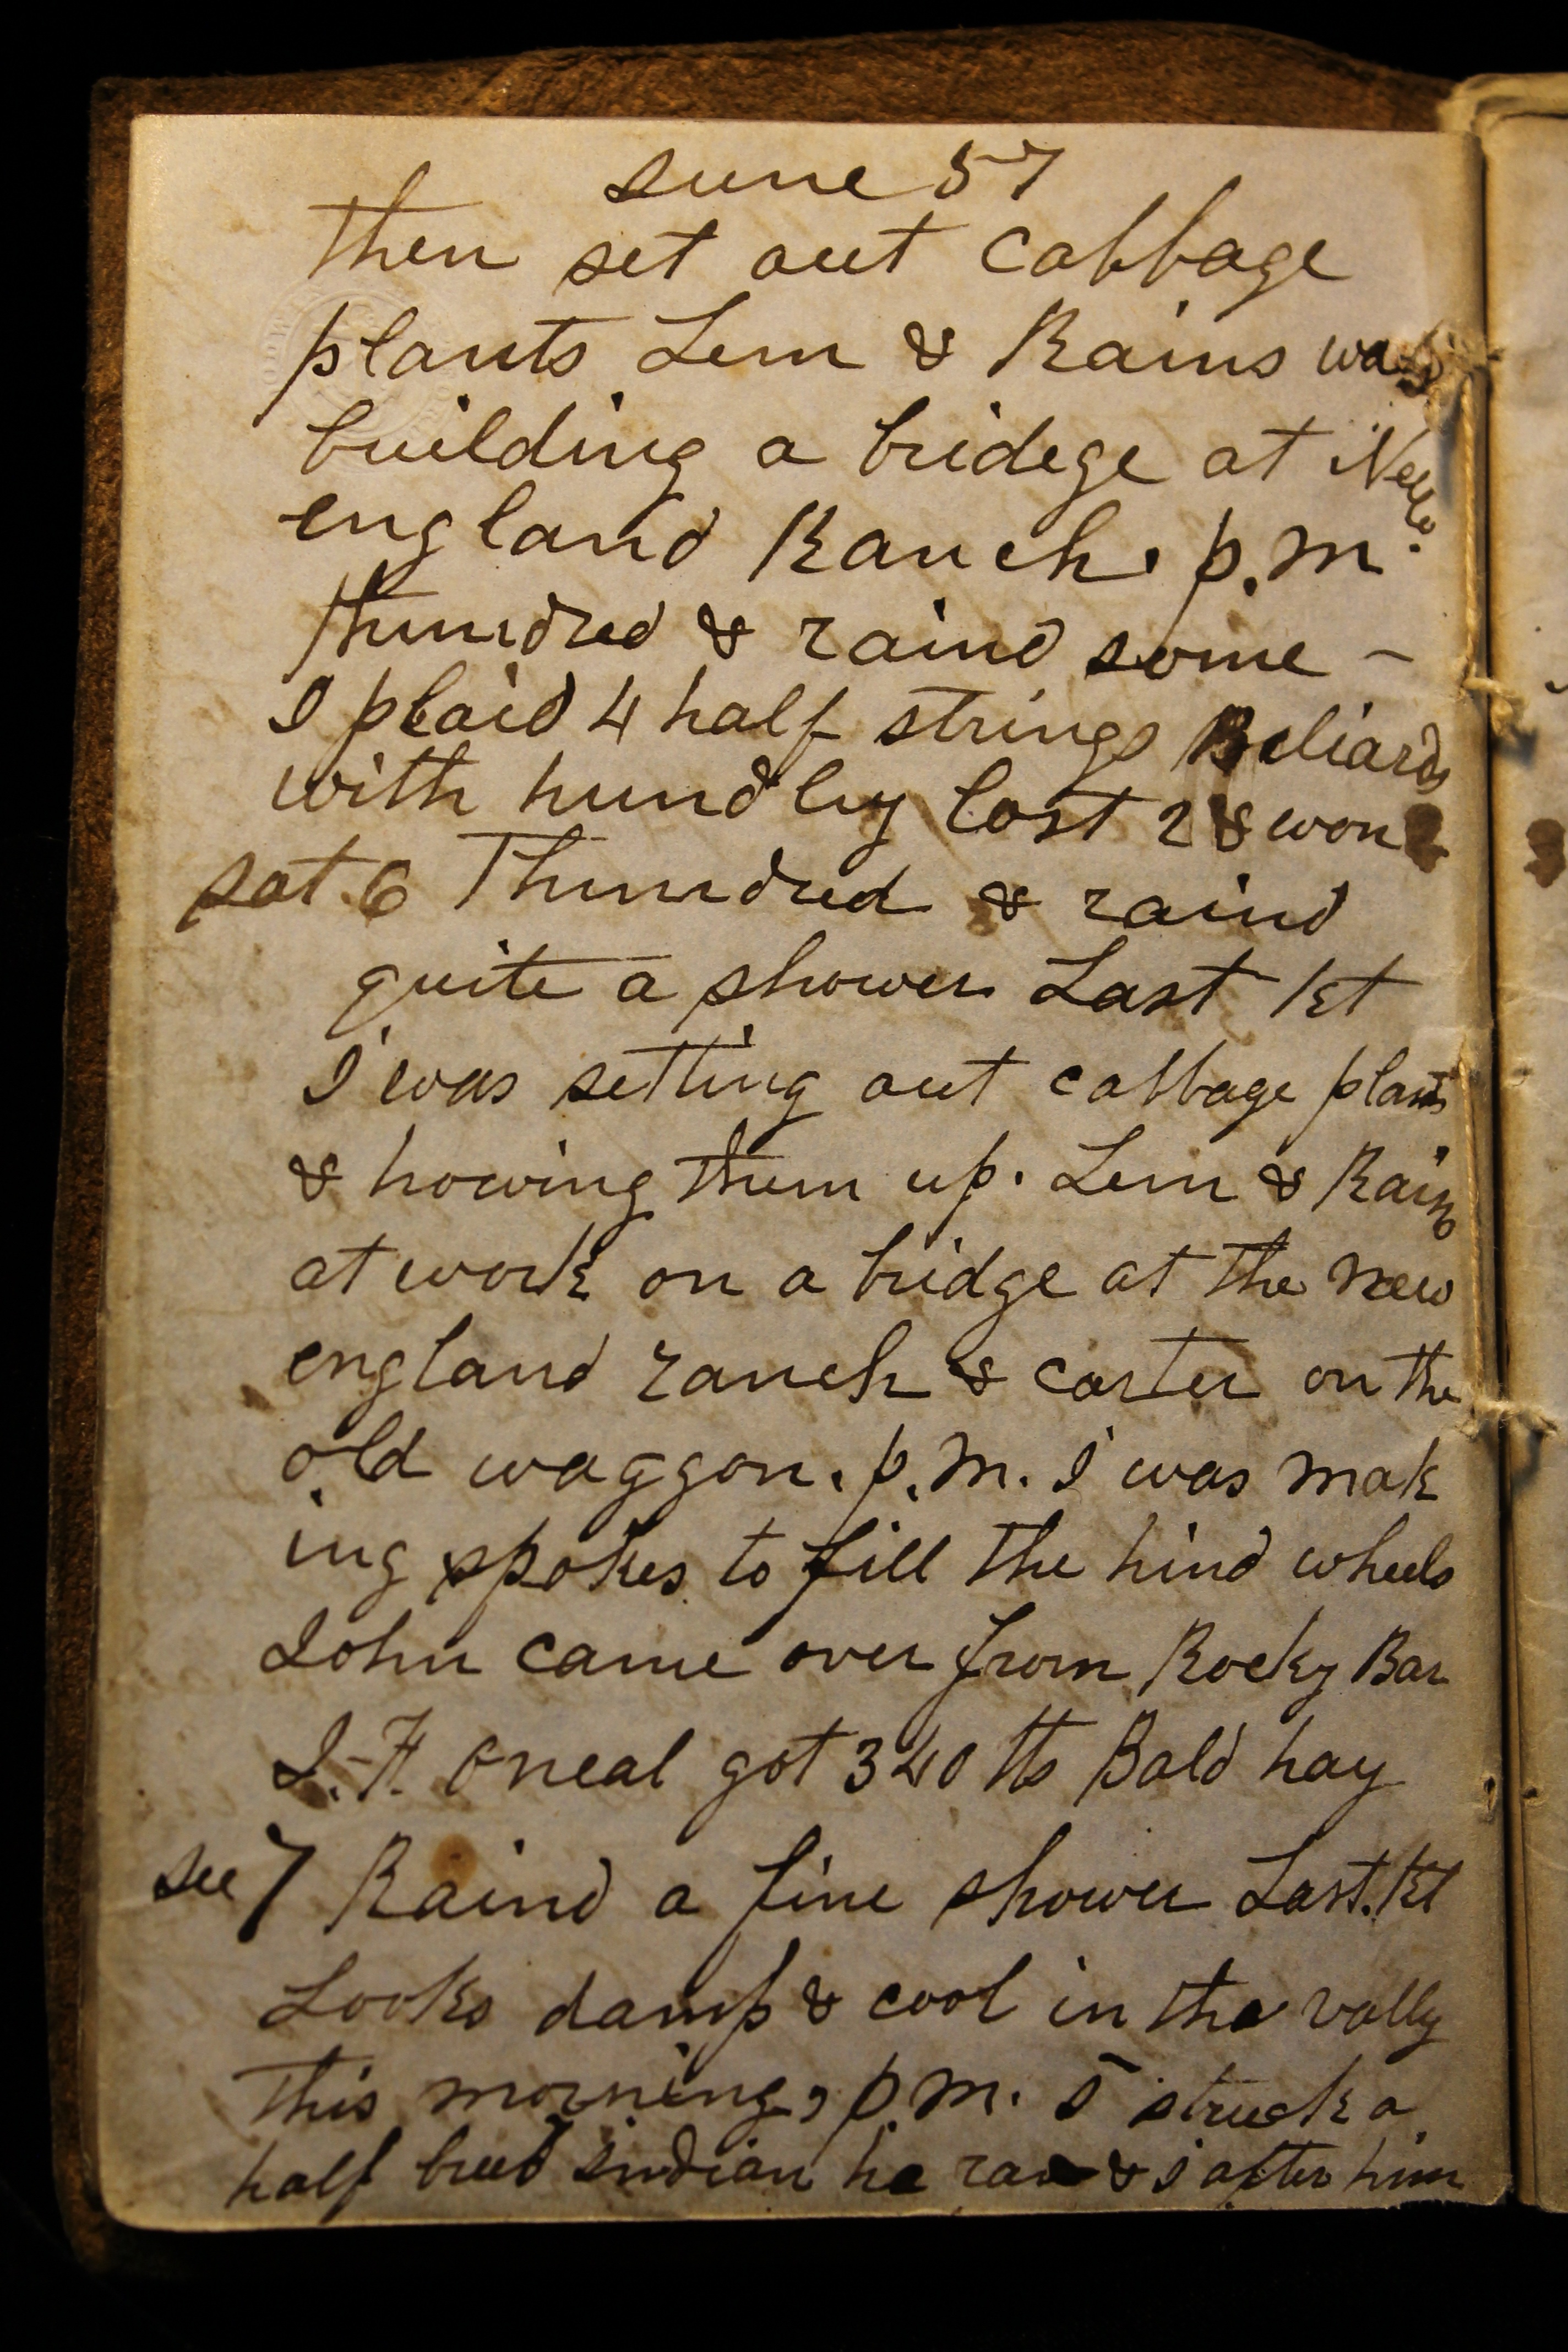 June 57
then set out cabbage
plants Lem & Rains was
building a bridege at New
england Ranch. p.m.
thundred & raind some -
I plaid 4 half strings Biliards
with hundley lost 2 & won
sat 6 Thundred & raind
quite a shower Last Nt
I was setting out cabbage plants
& howing them up. Lem & Rains
at work on a bridge at the new
england ranch & carter on the
old waggon. p.m. I was mak
ing spokes to fill the hind wheels
John came over from Rocky Bar
J. H. Oneal got 340 lbs Bald hay
7 Raind a fine shower Last. Nt
Looks damp & cool in the vally
this morning, p.m. I struck a
half breed indian he ran & I after him